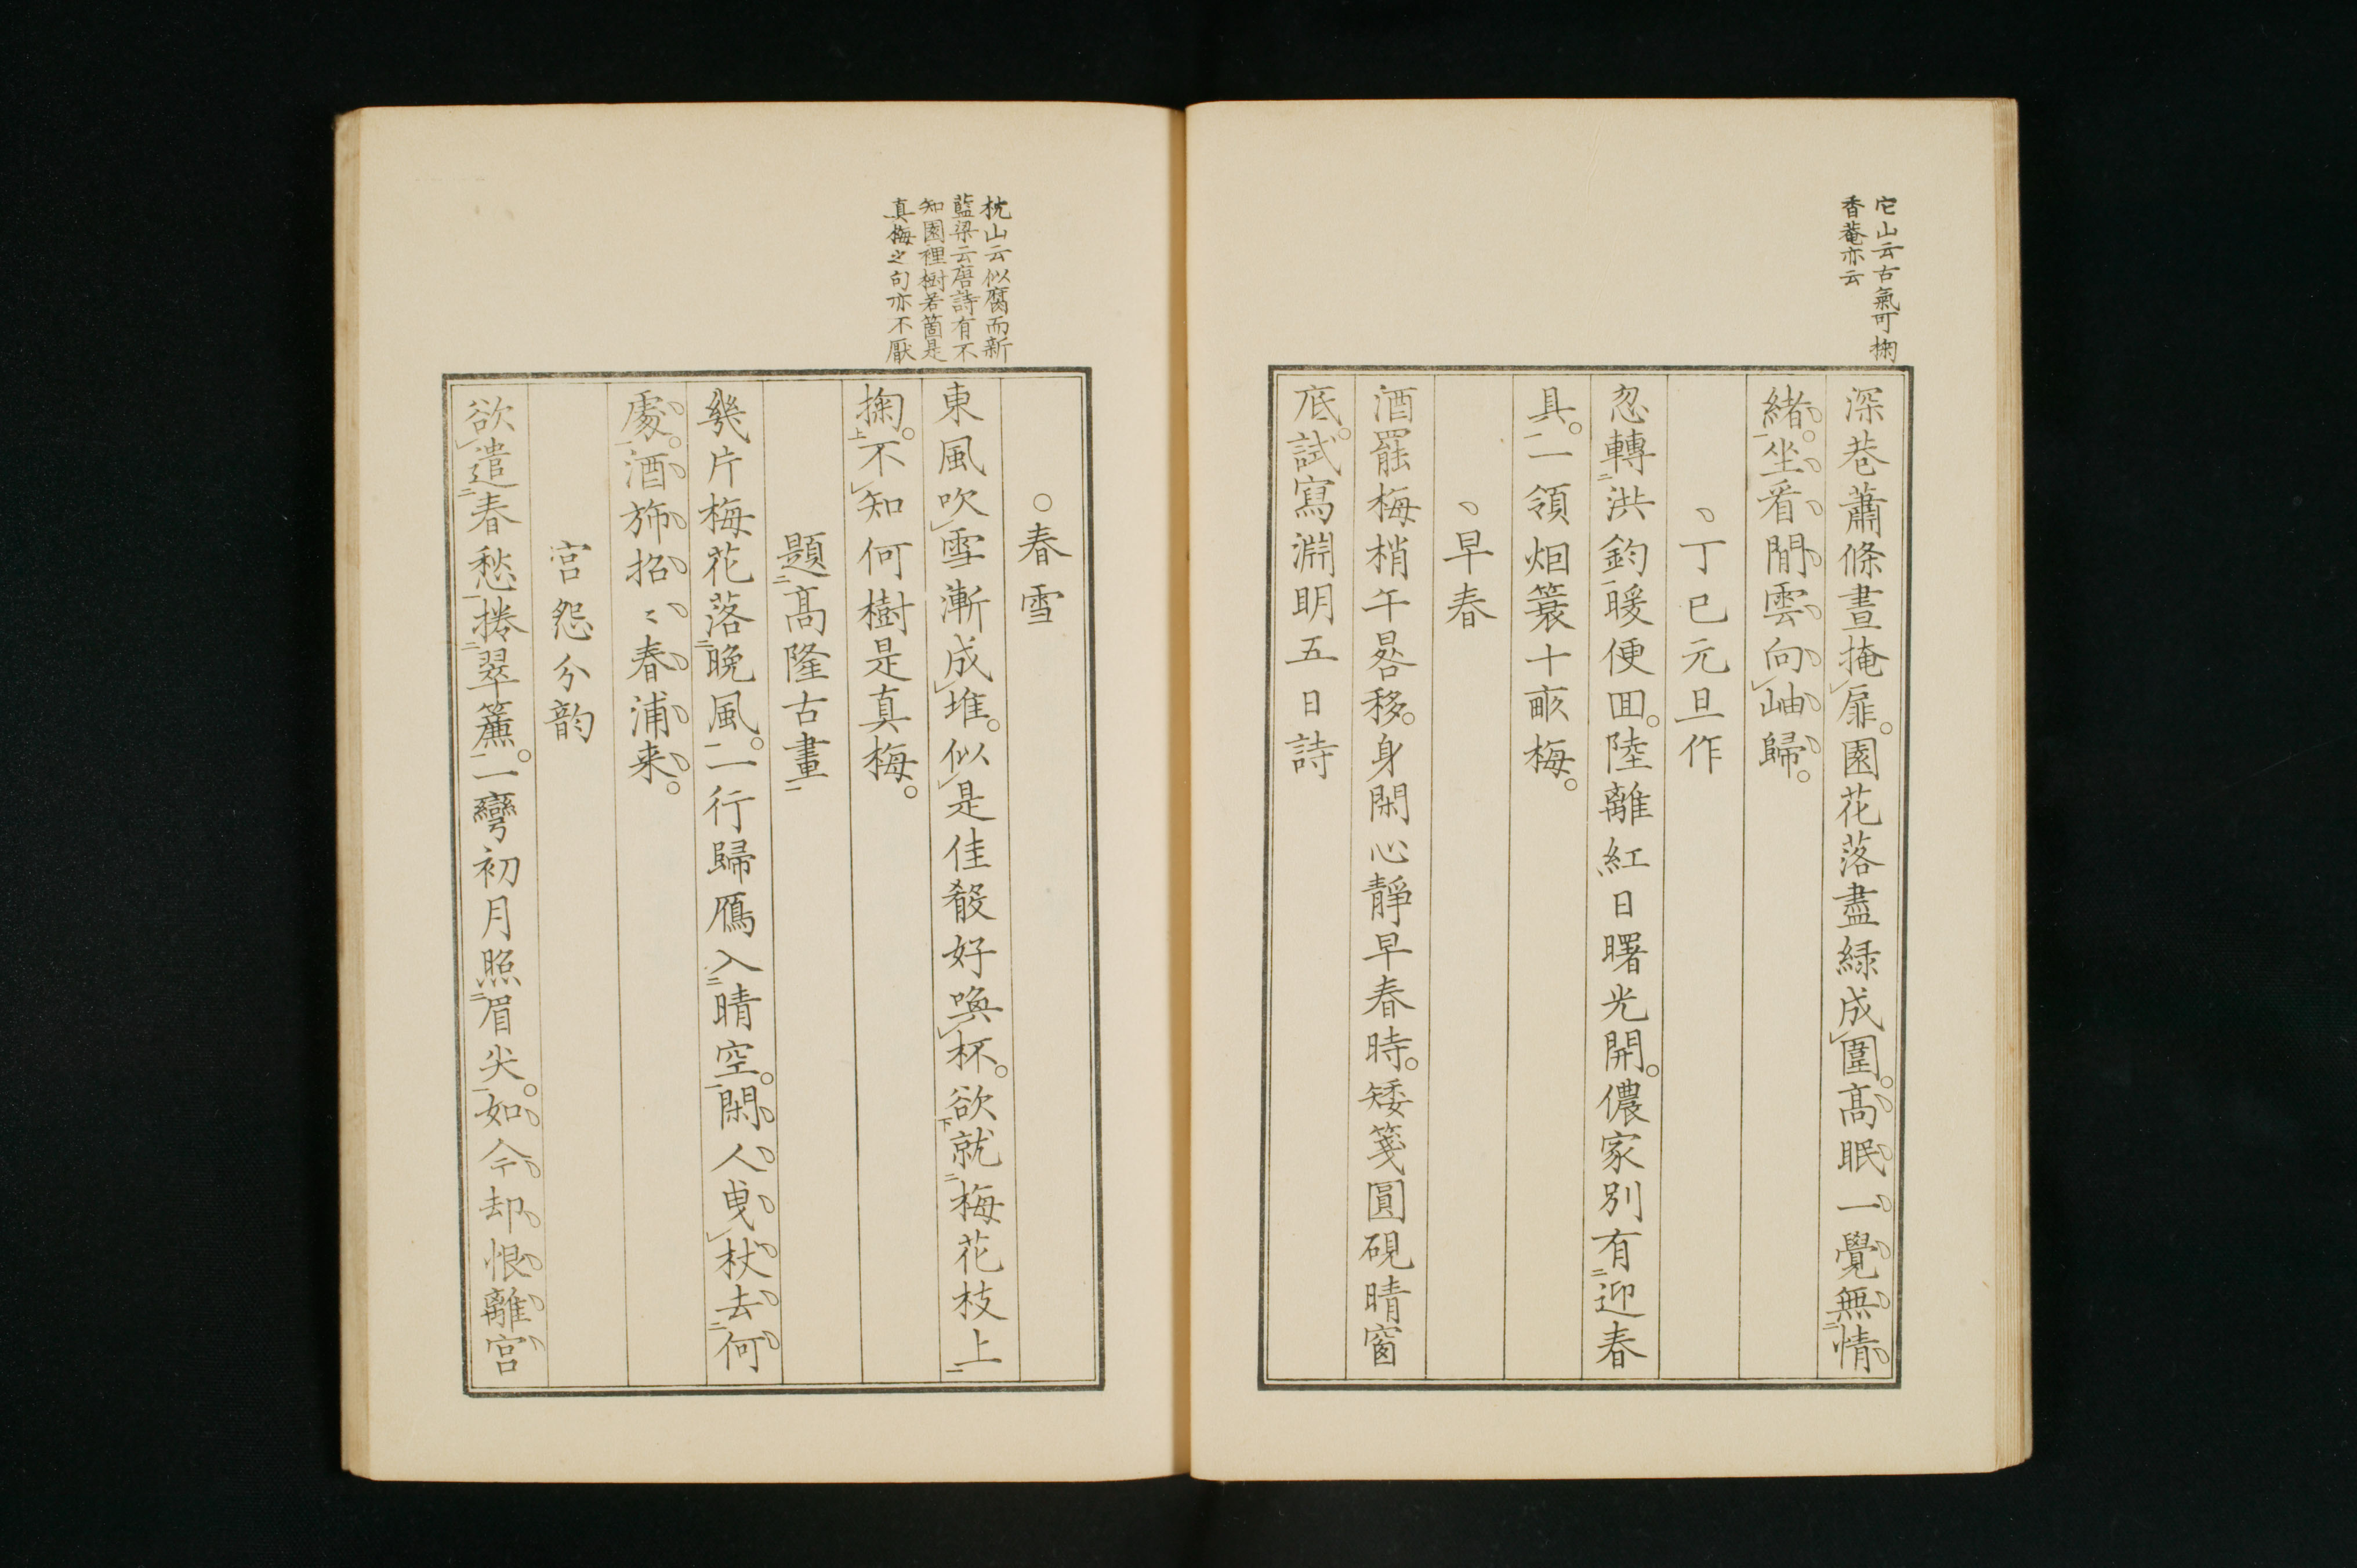 它山云古氣可掬
香菴亦云
深巷蕭條晝掩扉。園花落盡綠成圍。高眠一覺無情
緒。坐看閒雲向岫歸。
丁巳元旦作
忽轉洪鈞暖便回。陸離紅日曙光開。儂家別有迎春
具。一領烟簑十畝梅。
早春
酒罷梅梢午晷移。身閑心靜早春時。矮箋圓硯晴窗
底。試寫淵明五日詩
枕山云似腐而新
藍梁云唐詩有不
知園裡樹若箇是
真梅之句亦不厭
○春雪
東風吹雪漸成堆。似是佳殽好喚杯。欲就梅花枝上
掬。不知何樹是真梅。
題高隆古畫
幾片梅花落晚風。一行歸鴈入晴空。閑人曳杖去何
處。酒斾招〻春浦来。
宮怨分韵
欲遣春愁捲翠簾。一彎初月照眉尖。如今却恨離宮